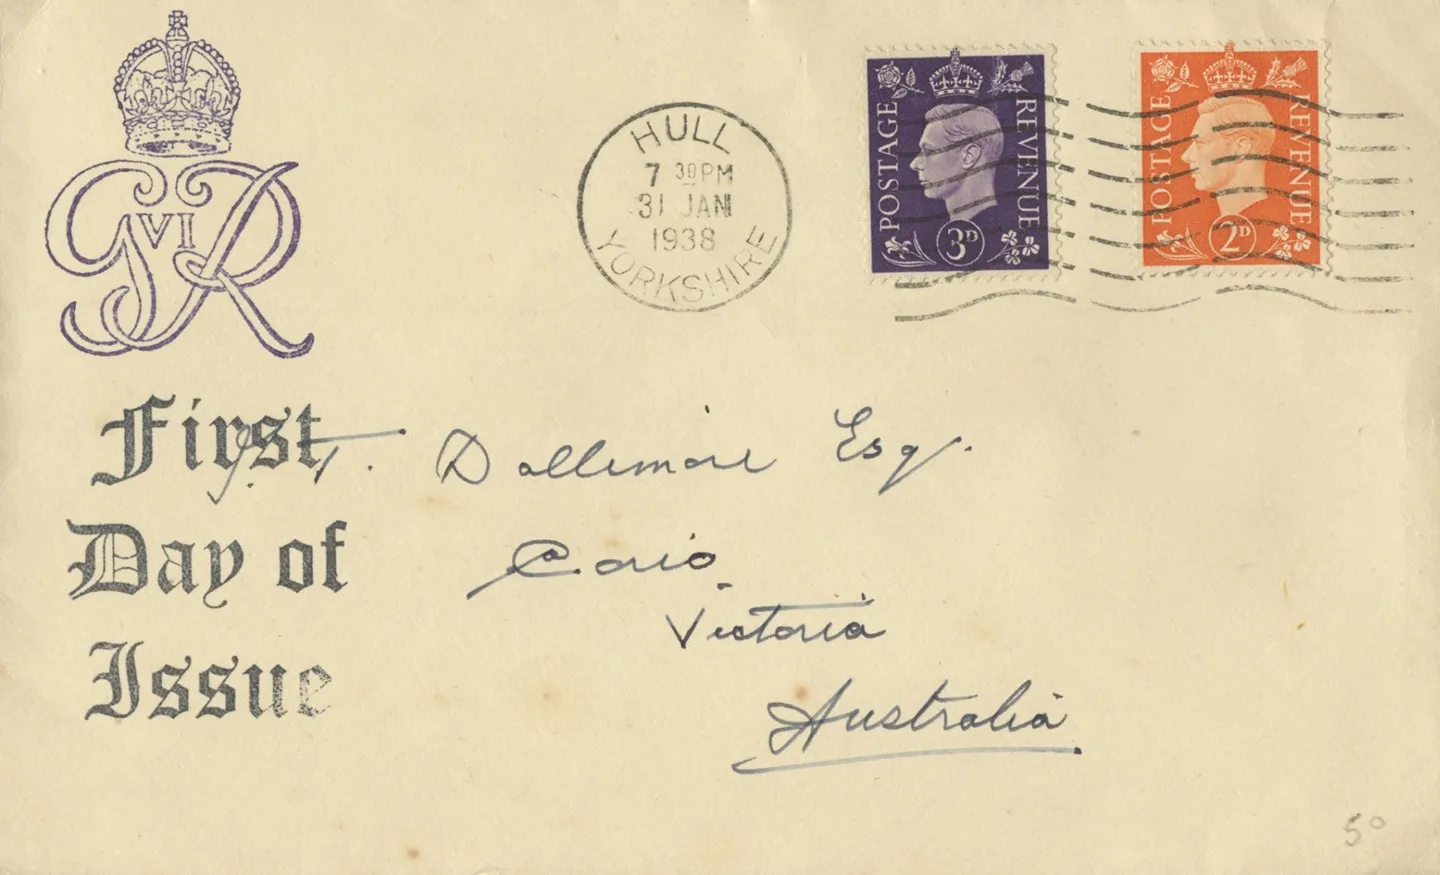 GVIR
HULL
7 30PM
31 JAN
1938
YORKSHIRE
POSTAGE REVENUE
3D
POSTAGE REVENUE
2D
First
Day of
Issue
Dallimore Esq.
Corio
Victoria
Australia
50